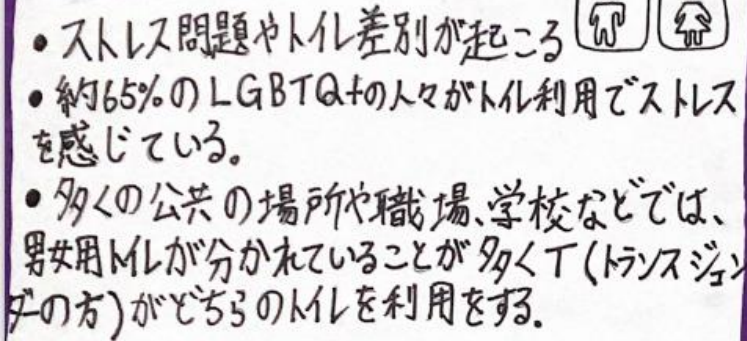 •ストレス問題やトイレ差別が起こる
•約65%のLGBTQ+の人々がトイレ利用でストレス
を感じている。
•多くの公共の場所や職場、学校などでは、
男女用トイレが分かれていることが多くT(トランスジェン
ダーの方)がどちらのトイレを利用をする.